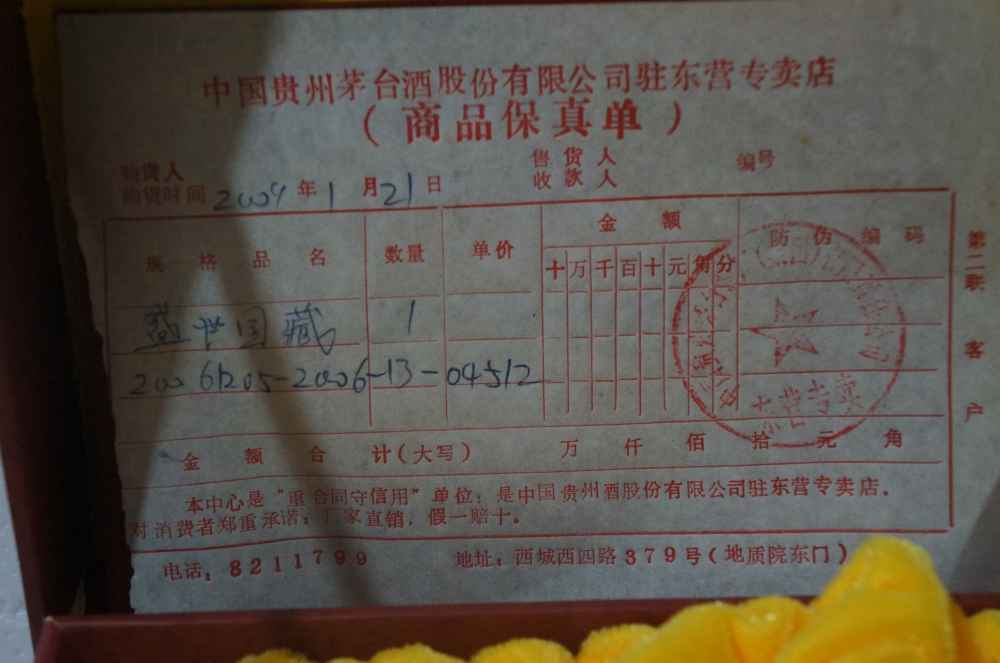 中国贵州茅台酒股份有限公司驻东营专卖店
(商品保真单)
购货人 售货人 编号
购货时间 2009年1月21日 收款人
规格品名 数量 单价 金额 防伪编码
十万千百十元角分
盛世国藏 1
20061205-2006-13-04512
金额合计(大写) 万仟佰拾元角
本中心是"重合同守信用"单位;是中国贵州酒股份有限公司驻东营专卖店。
对消费者郑重承诺:厂家直销,假一赔十。
电话:8211799 地址:西城西四路379号(地质院东门)
第二联客户
东营专卖